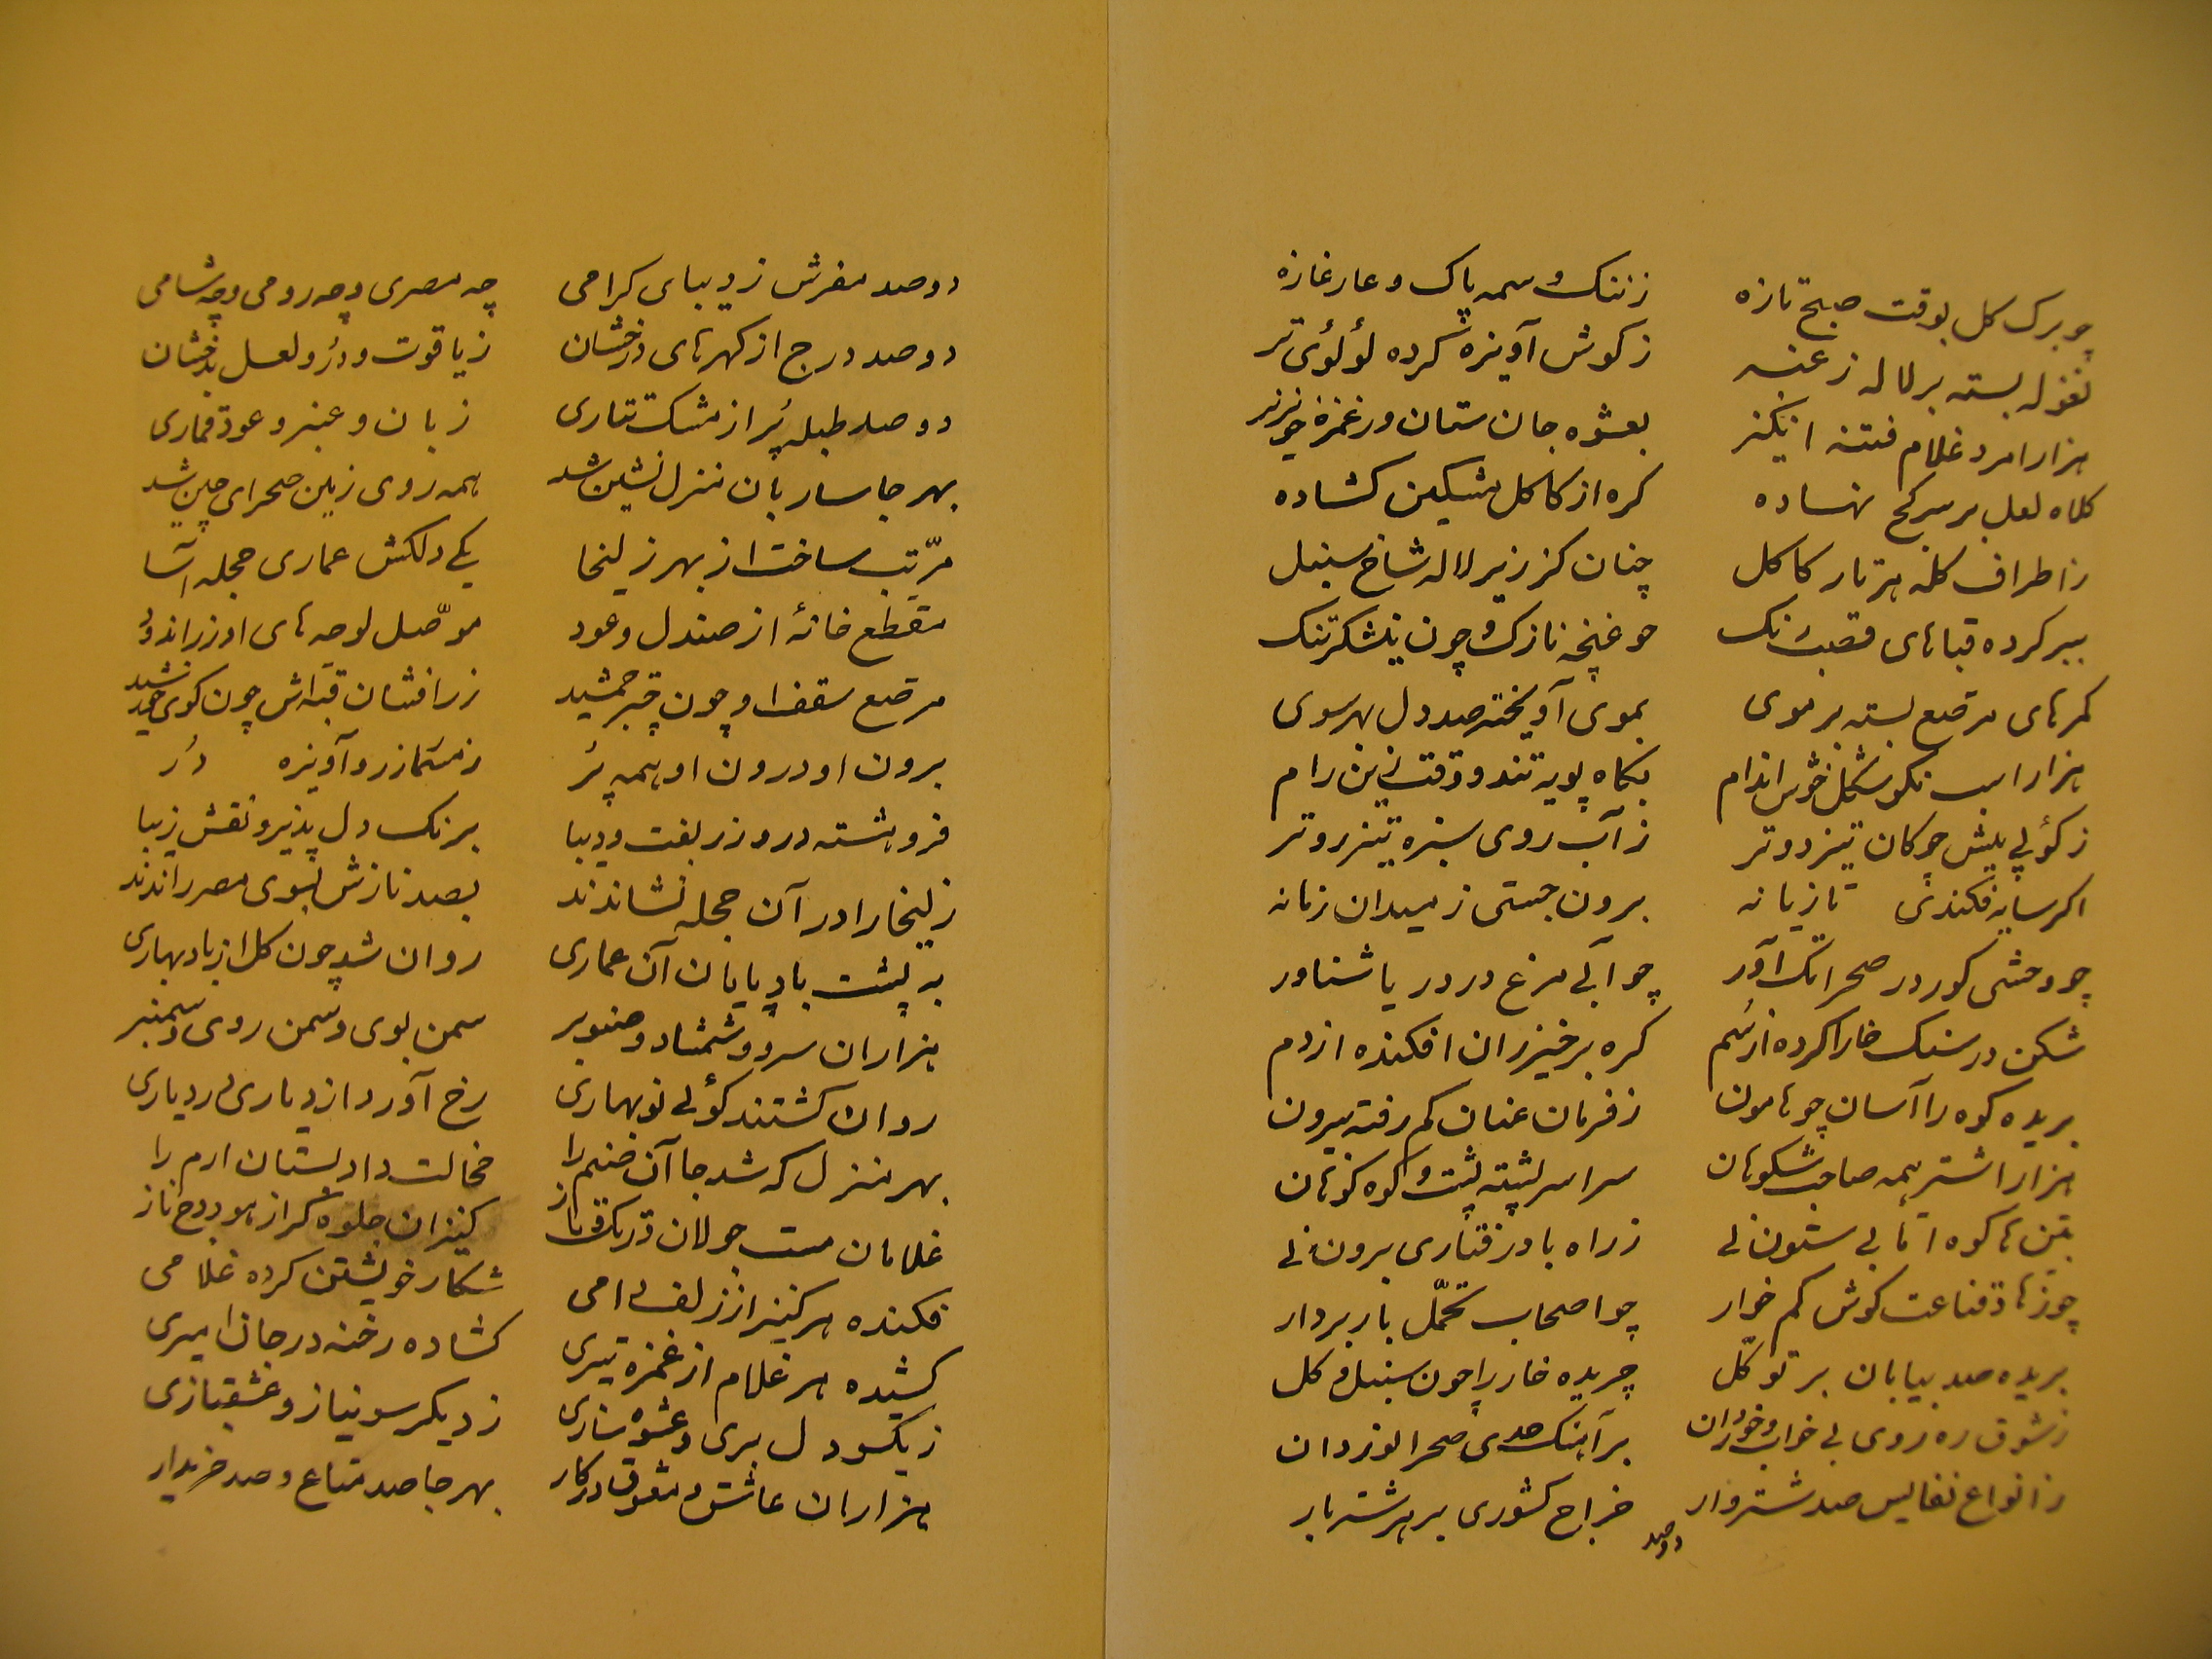 چو برک کل بوقت صبح تازه    ز ننک وسمه پاک و عار غازه
نغوله بسته بر لاله ز عنبر    ز کوش آویزه کرده لؤلؤی تر
هزار امرد غلام فتنه انکیز    بعشوه جان ستان و ز غمزه خونریز
کلاه لعل بر سر کج نهاده    کره از کاکل مشکین کشاده
ز اطراف کله هر تار کاکل    چنان کز زیر لاله شاخ سنبل
ببر کرده قباهای قصب رنک    چو غنچه نازک و چون نیشکر تنک
کمرهای مرصع بسته بر موی    بموی آویخته صد دل بهر سوی
هزار اسب نکو شکل خوش اندام    بکاه پویه تند و وقت زین رام
ز کوئی پیش چوکان تیز دو تر    ز آب روی سبزه تیز رو تر
اکر سایه فکندی تازیانه    برون جستی ز میدان زمانه
چو وحشی کور در صحرا تک آور    چو آبی مرغ در دریا شناور
شکن در سنک خارا کرده از سم    کره بر خیزران افکنده از دم
بریده کوه را آسان چو هامون    ز فرمان عنان کم رفته بیرون
هزار اشتر همه صاحب شکوهان    سراسر پشته پشت و کوه کوهان
بتن ها کوه اما بی ستون نی    ز راه باد رفتاری برون نی
چو زهاد قناعت کوش کم خوار    چو اصحاب تحمّل بار بردار
بریده صد بیابان بر توکّل    چریده خار را چون سنبل و کل
ز شوق ره روی بی خواب و خوران    بر آهنک حدی صحرا نوردان
ز انواع نفایس صد شتروار    خراج کشوری بر هر شتر بار
دو صد
دو صد مفرش ز دیبای کرامی    چه مصری و چه رومی و چه شامی
دو صد درج از کهرهای درخشان    ز یاقوت و دُر و لعل بدخشان
دو صد طبله پُر از مشک تتاری    ز بان و عنبر و عود قماری
بهر جا ساربان منزل نشین شد    همه روی زمین صحرای چین شد
مرّتب ساخت از بهر زلیخا    یکی دلکش عماری حجله آسا
مقطع خانهٔ از صندل و عود    موصّل لوحه های او زر اندود
مرصع سقف او چون قبه جمشید    زر افشان قبه اش چون کوی خورشید
برون او درون او همه پُر    ز مسمار زر و آویزه دُر
فرو هشته درو زربفت و دیبا    برنک دل پذیر و نقش زیبا
زلیخا را در آن حجله نشاندند    بصد نازش بسوی مصر راندند
به پشت باد پایان آن عماری    روان شد چون کل از باد بهاری
هزاران سرو و شمشاد و صنوبر    سمن بوی و سمن روی و سمنبر
روان کشتند کوئی نوبهاری    رخ آورد از دیاری در دیاری
بهر منزل که شد جا آن صنم را    خجالت داد بستان ارم را
غلامان مست جولان در تک و تاز    کنیزان جلوه کر از هودج ناز
فکنده هر کنیز از زلف دامی    شکار خویشتن کرده غلامی
کشیده هر غلام از غمزه تیری    کشاده رخنه در جان اسیری
ز یکسو دل بری و عشوه سازی    ز دیکر سو نیاز و عشقبازی
هزاران عاشق و معشوق در کار    بهر جا صد متاع و صد خریدار